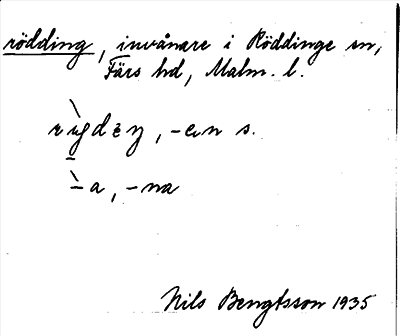 rödding, invånare i Röddinge sn,
Färs hd, Malm. l.
-en s.
-a, -na
Nils Bengtsson 1935